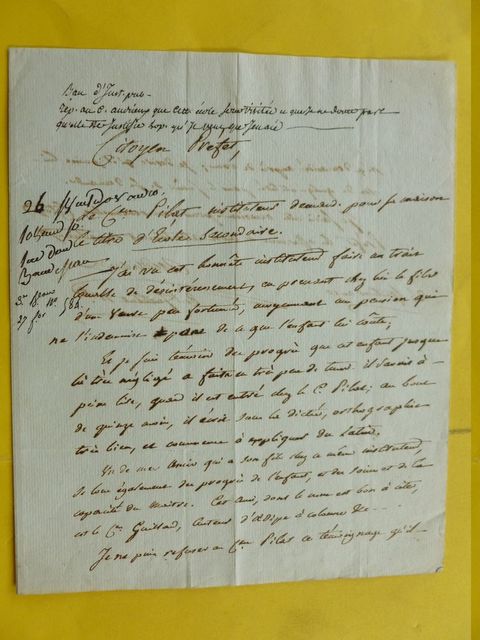 Bau d'Inst. pub.
rép. au C. andrieux que cette école sera visitée et que je ne doute pas
qu'elle ne justifie
Citoyen Prefet,
26
Le C.en Pilat instituteur demande pour sa maison
le titre d'Ecole Secondaire.
J'ai vu cet honnête instituteur faire un trait
louable de désintéressement, en prenant chez lui le fils
d'un veuve peu fortunée, moyennant un pension qui
ne l'indemnise pas de ce que l'enfant lui coûte,
Et je suis témoin des progrès que cet enfant presque
très négligé a faits en très peu de tems. il savoit à-
peine lire, quand il est entré chez le C. Pilat; au bout
de quinze mois, il écrit sous la dictée, orthographie
très bien, et commence à expliquer du latin.
Un de mes Amis qui a son fils chez ce même instituteur,
se loue également des progrès de l'enfant, et du soin et de la
capacité du maître. Cet ami, dont le nom est bon à citer,
est le C.en Guillard, auteur d'Œdipe à colonne &c - - -
Je ne puis refuser au C.en Pilat ce témoignage qu'il